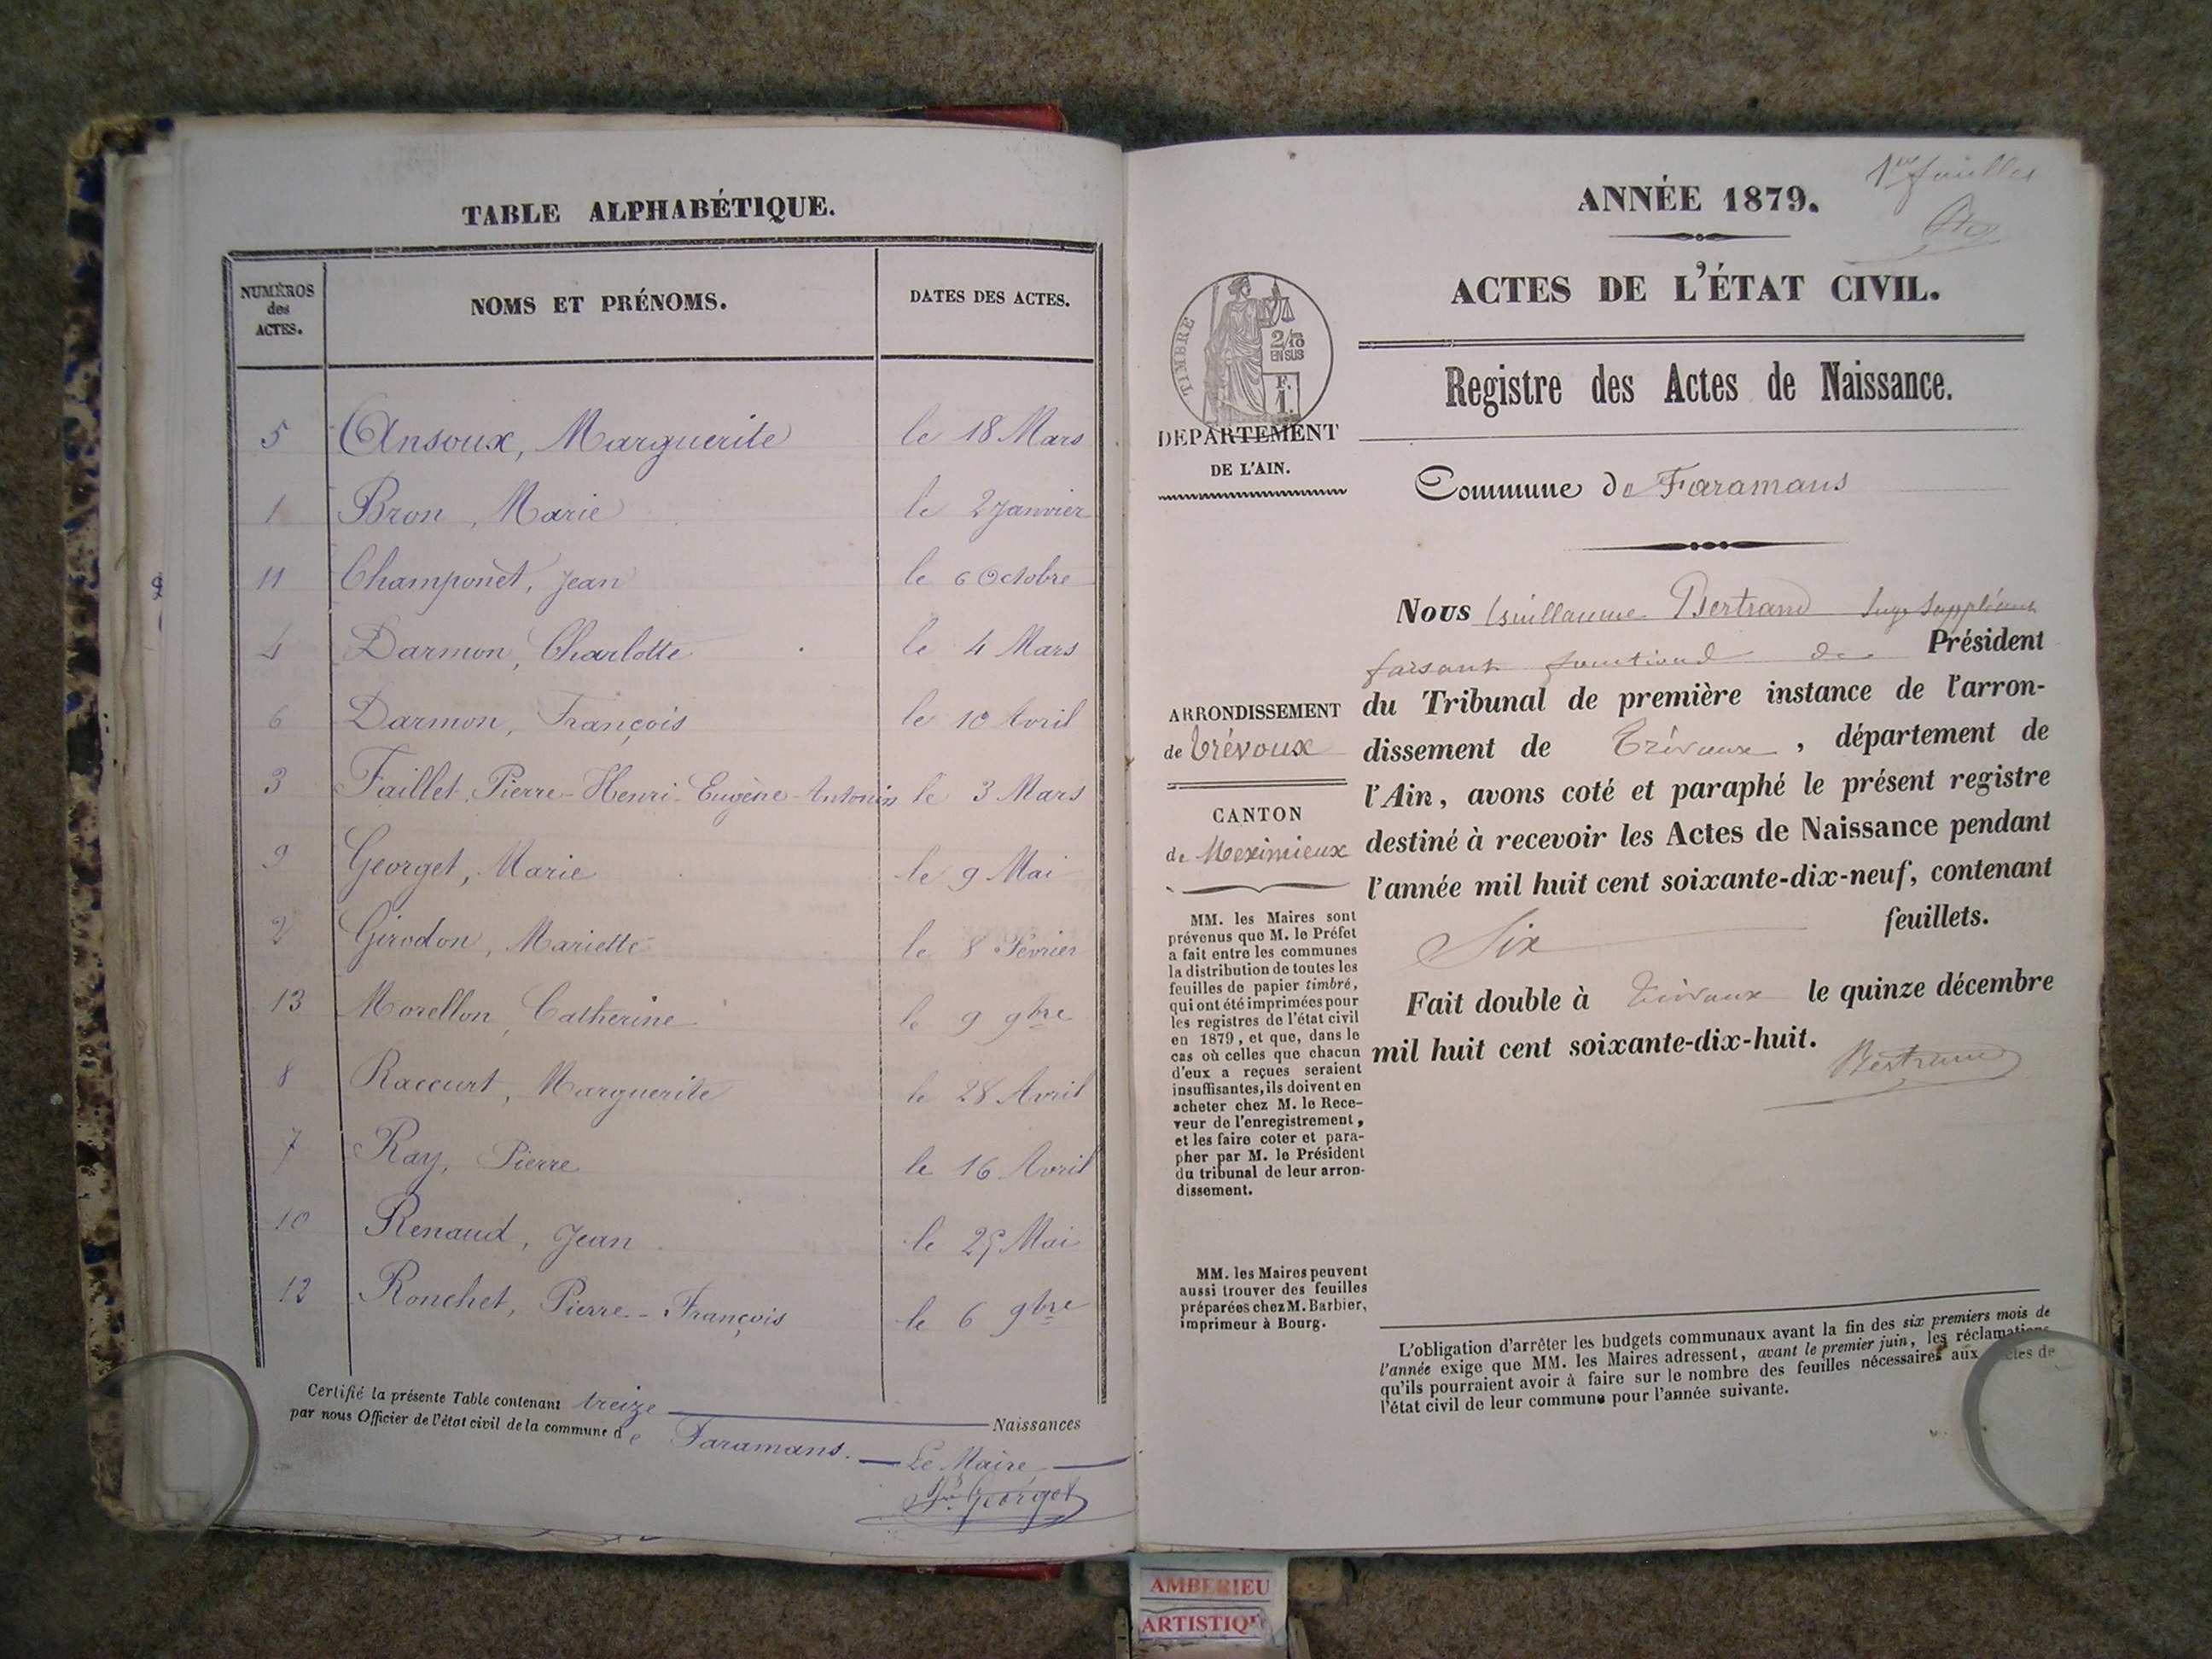 TABLE ALPHABÉTIQUE.
NUMÉROS des ACTES. NOMS ET PRÉNOMS. DATES DES ACTES.
5 Ansoux, Marguerite le 18 Mars
1 Bron, Marie le 2 Janvier
11 Champonet, Jean le 6 Octobre
4 Darmon, Charlotte le 4 Mars
6 Darmon, François le 10 Avril
3 Faillet, Pierre-Henri-Eugène-Antonin le 3 Mars
9 Georget, Marie le 9 Mai
2 Girodon, Mariette le 8 Février
13 Morellon, Catherine le 9 9bre
8 Raccurt, Marguerite le 28 Avril
7 Ray, Pierre le 16 Avril
10 Renaud, Jean le 25 Mai
12 Ronchet, Pierre-François le 6 9bre
Certifié la présente Table contenant treize Naissances
par nous Officier de l'état civil de la commune de Faramans.
Le Maire,
Georget
1er feuillet
ANNÉE 1879.
ACTES DE L'ÉTAT CIVIL.
Registre des Actes de Naissance.
TIMBRE
2/10
EN SUS
F.
1.
DEPARTEMENT
DE L'AIN.
Commune de Faramans
ARRONDISSEMENT
de Trévoux
CANTON
de Meximieux
MM. les Maires sont
prévenus que M. le Préfet
a fait entre les communes
la distribution de toutes les
feuilles de papier timbré,
qui ont été imprimées pour
les registres de l'état civil
en 1879, et que, dans le
cas où celles que chacun
d'eux a reçues seraient
insuffisantes, ils doivent en
acheter chez M. le Rece-
veur de l'enregistrement,
et les faire coter et para-
pher par M. le Président
du tribunal de leur arron-
dissement.
MM. les Maires peuvent
aussi trouver des feuilles
préparées chez M. Barbier,
imprimeur à Bourg.
Nous Guillaume Bertrand Juge Suppléant
faisant fonctions de Président
du Tribunal de première instance de l'arron-
dissement de Trévoux, département de
l'Ain, avons coté et paraphé le présent registre
destiné à recevoir les Actes de Naissance pendant
l'année mil huit cent soixante-dix-neuf, contenant
Six feuillets.
Fait double à Trévoux le quinze décembre
mil huit cent soixante-dix-huit.
Bertrand
L'obligation d'arrêter les budgets communaux avant la fin des six premiers mois de
l'année exige que MM. les Maires adressent, avant le premier juin, les réclamations
qu'ils pourraient avoir à faire sur le nombre des feuilles nécessaires aux actes de
l'état civil de leur commune pour l'année suivante.
AMBERIEU
ARTISTIQU